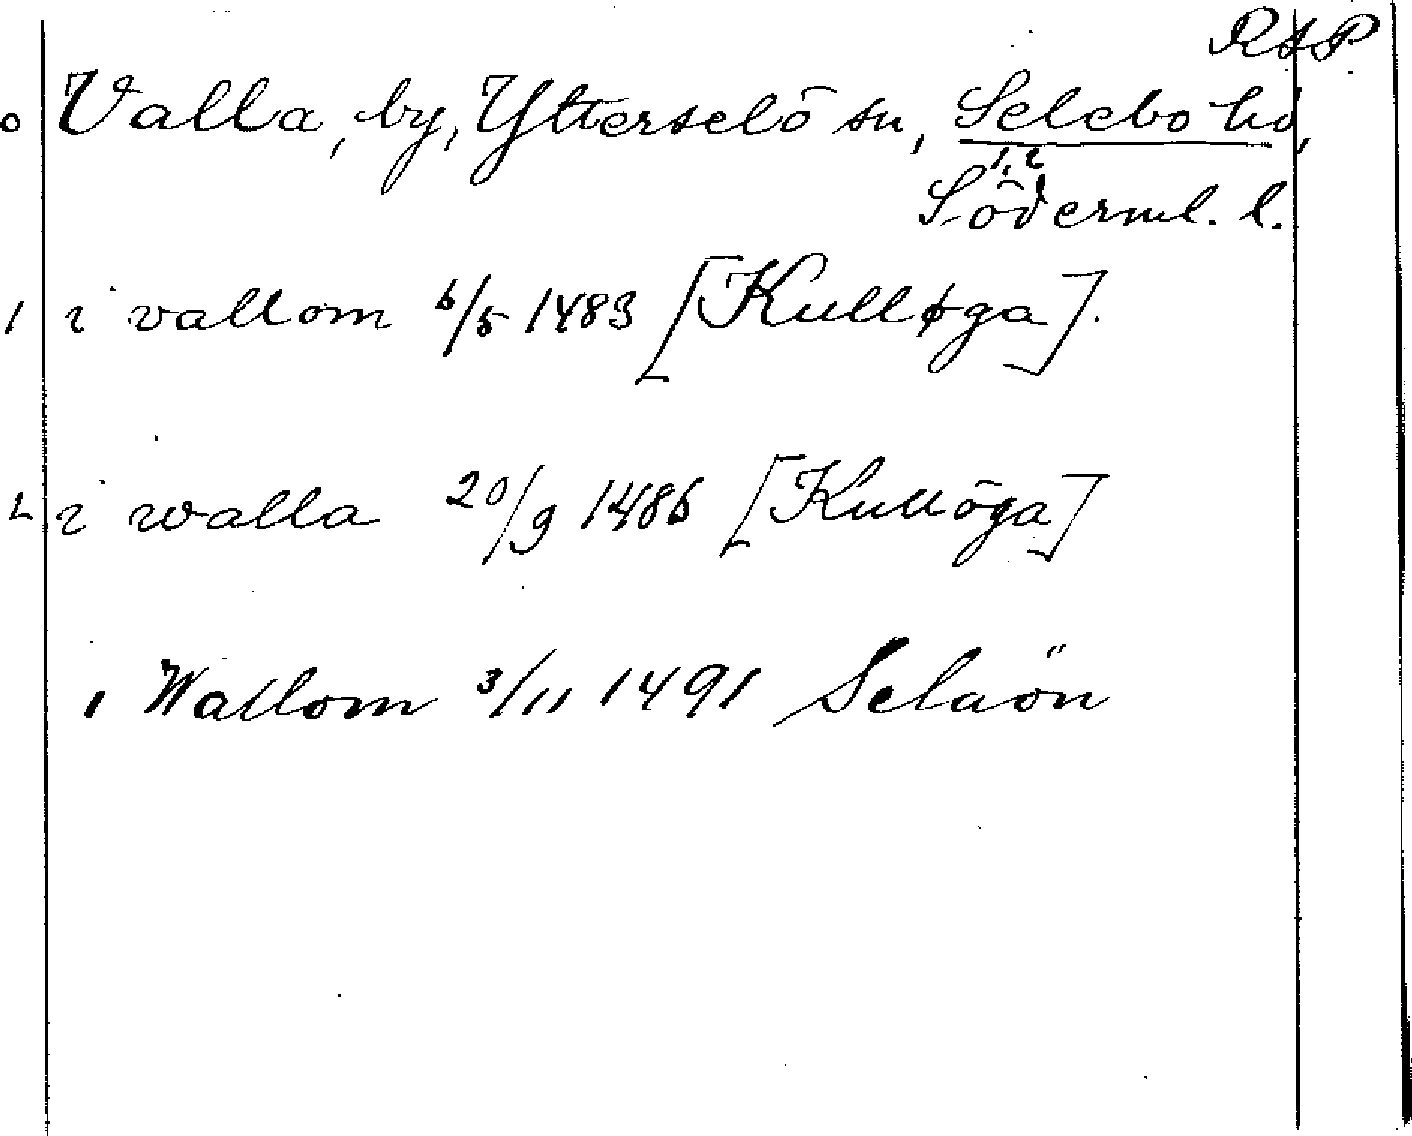 RAP
o Valla, by, Ytterselö sn, Selebo hd,
1, 2
Söderml. l.
1 i vallom 6/5 1483 [Kulløga].
2 i walla 20/9 1486 [Kullöga]
i Wallom 3/11 1491 Selaön